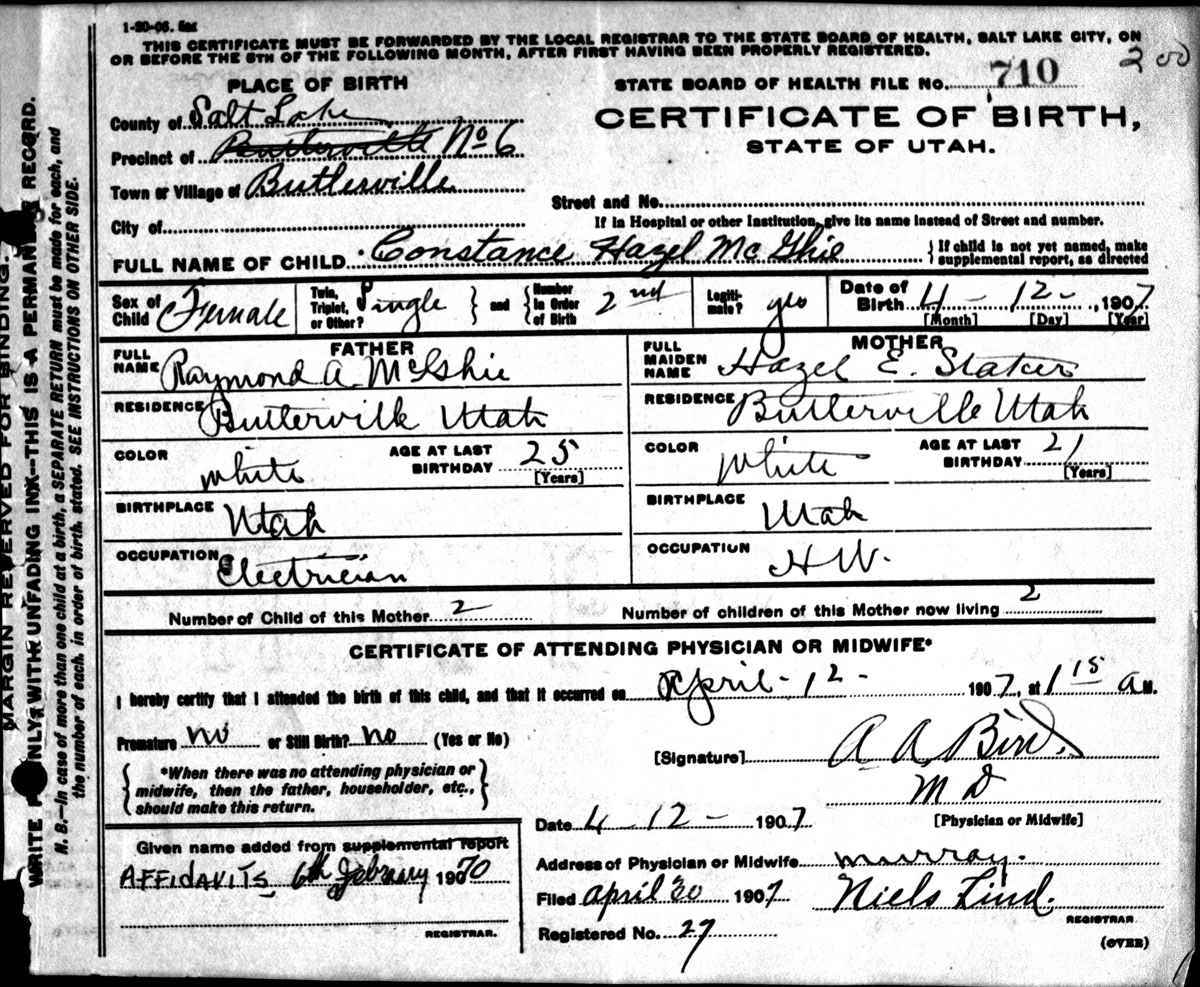 1-20-06. 5m
THIS CERTIFICATE MUST BE FORWARDED BY THE LOCAL REGISTRAR TO THE STATE BOARD OF HEALTH, SALT LAKE CITY, ON
OR BEFORE THE 5TH OF THE FOLLOWING MONTH, AFTER FIRST HAVING BEEN PROPERLY REGISTERED.
PLACE OF BIRTH
STATE BOARD OF HEALTH FILE No. 710
County of Salt Lake
CERTIFICATE OF BIRTH,
Precinct of Butlerville No 6
STATE OF UTAH.
Town or Village of Butlerville
Street and No.
City of
If in Hospital or other Institution, give its name instead of Street and number.
FULL NAME OF CHILD Constance Hazel McGhie
If child is not yet named, make
supplemental report, as directed
Sex of Child Female
Twin, Triplet, or Other? Single and Number in Order of Birth 2nd
Legitimate? yes
Date of Birth 4 - 12 - 1907
[Month] [Day] [Year]
FATHER
FULL NAME Raymond A McGhie
RESIDENCE Butlerville Utah
COLOR white
AGE AT LAST BIRTHDAY 25
[Years]
BIRTHPLACE Utah
OCCUPATION Electrician
MOTHER
FULL MAIDEN NAME Hazel E. Staker
RESIDENCE Butlerville Utah
COLOR White
AGE AT LAST BIRTHDAY 21
[Years]
BIRTHPLACE Utah
OCCUPATION H W.
Number of Child of this Mother 2
Number of children of this Mother now living 2
CERTIFICATE OF ATTENDING PHYSICIAN OR MIDWIFE*
I hereby certify that I attended the birth of this child, and that it occurred on April - 12 - 1907, at 1 15 a M.
Premature no or Still Birth? no (Yes or No)
[Signature] A A Bird.
M D
[Physician or Midwife]
*When there was no attending physician or
midwife, then the father, householder, etc.,
should make this return.
Date 4 - 12 - 1907
Given name added from supplemental report
AFFIDAVITS, 6th February 1970
REGISTRAR.
Address of Physician or Midwife Murray.
Filed April 30 1907 Niels Lind.
REGISTRAR
Registered No. 27
(OVER)
MARGIN RESERVED FOR BINDING.
WRITE ONLY WITH UNFADING INK--THIS IS A PERMANENT RECORD.
N. B.--In case of more than one child at a birth, a SEPARATE RETURN must be made for each, and
the number of each, in order of birth, stated. SEE INSTRUCTIONS ON OTHER SIDE.